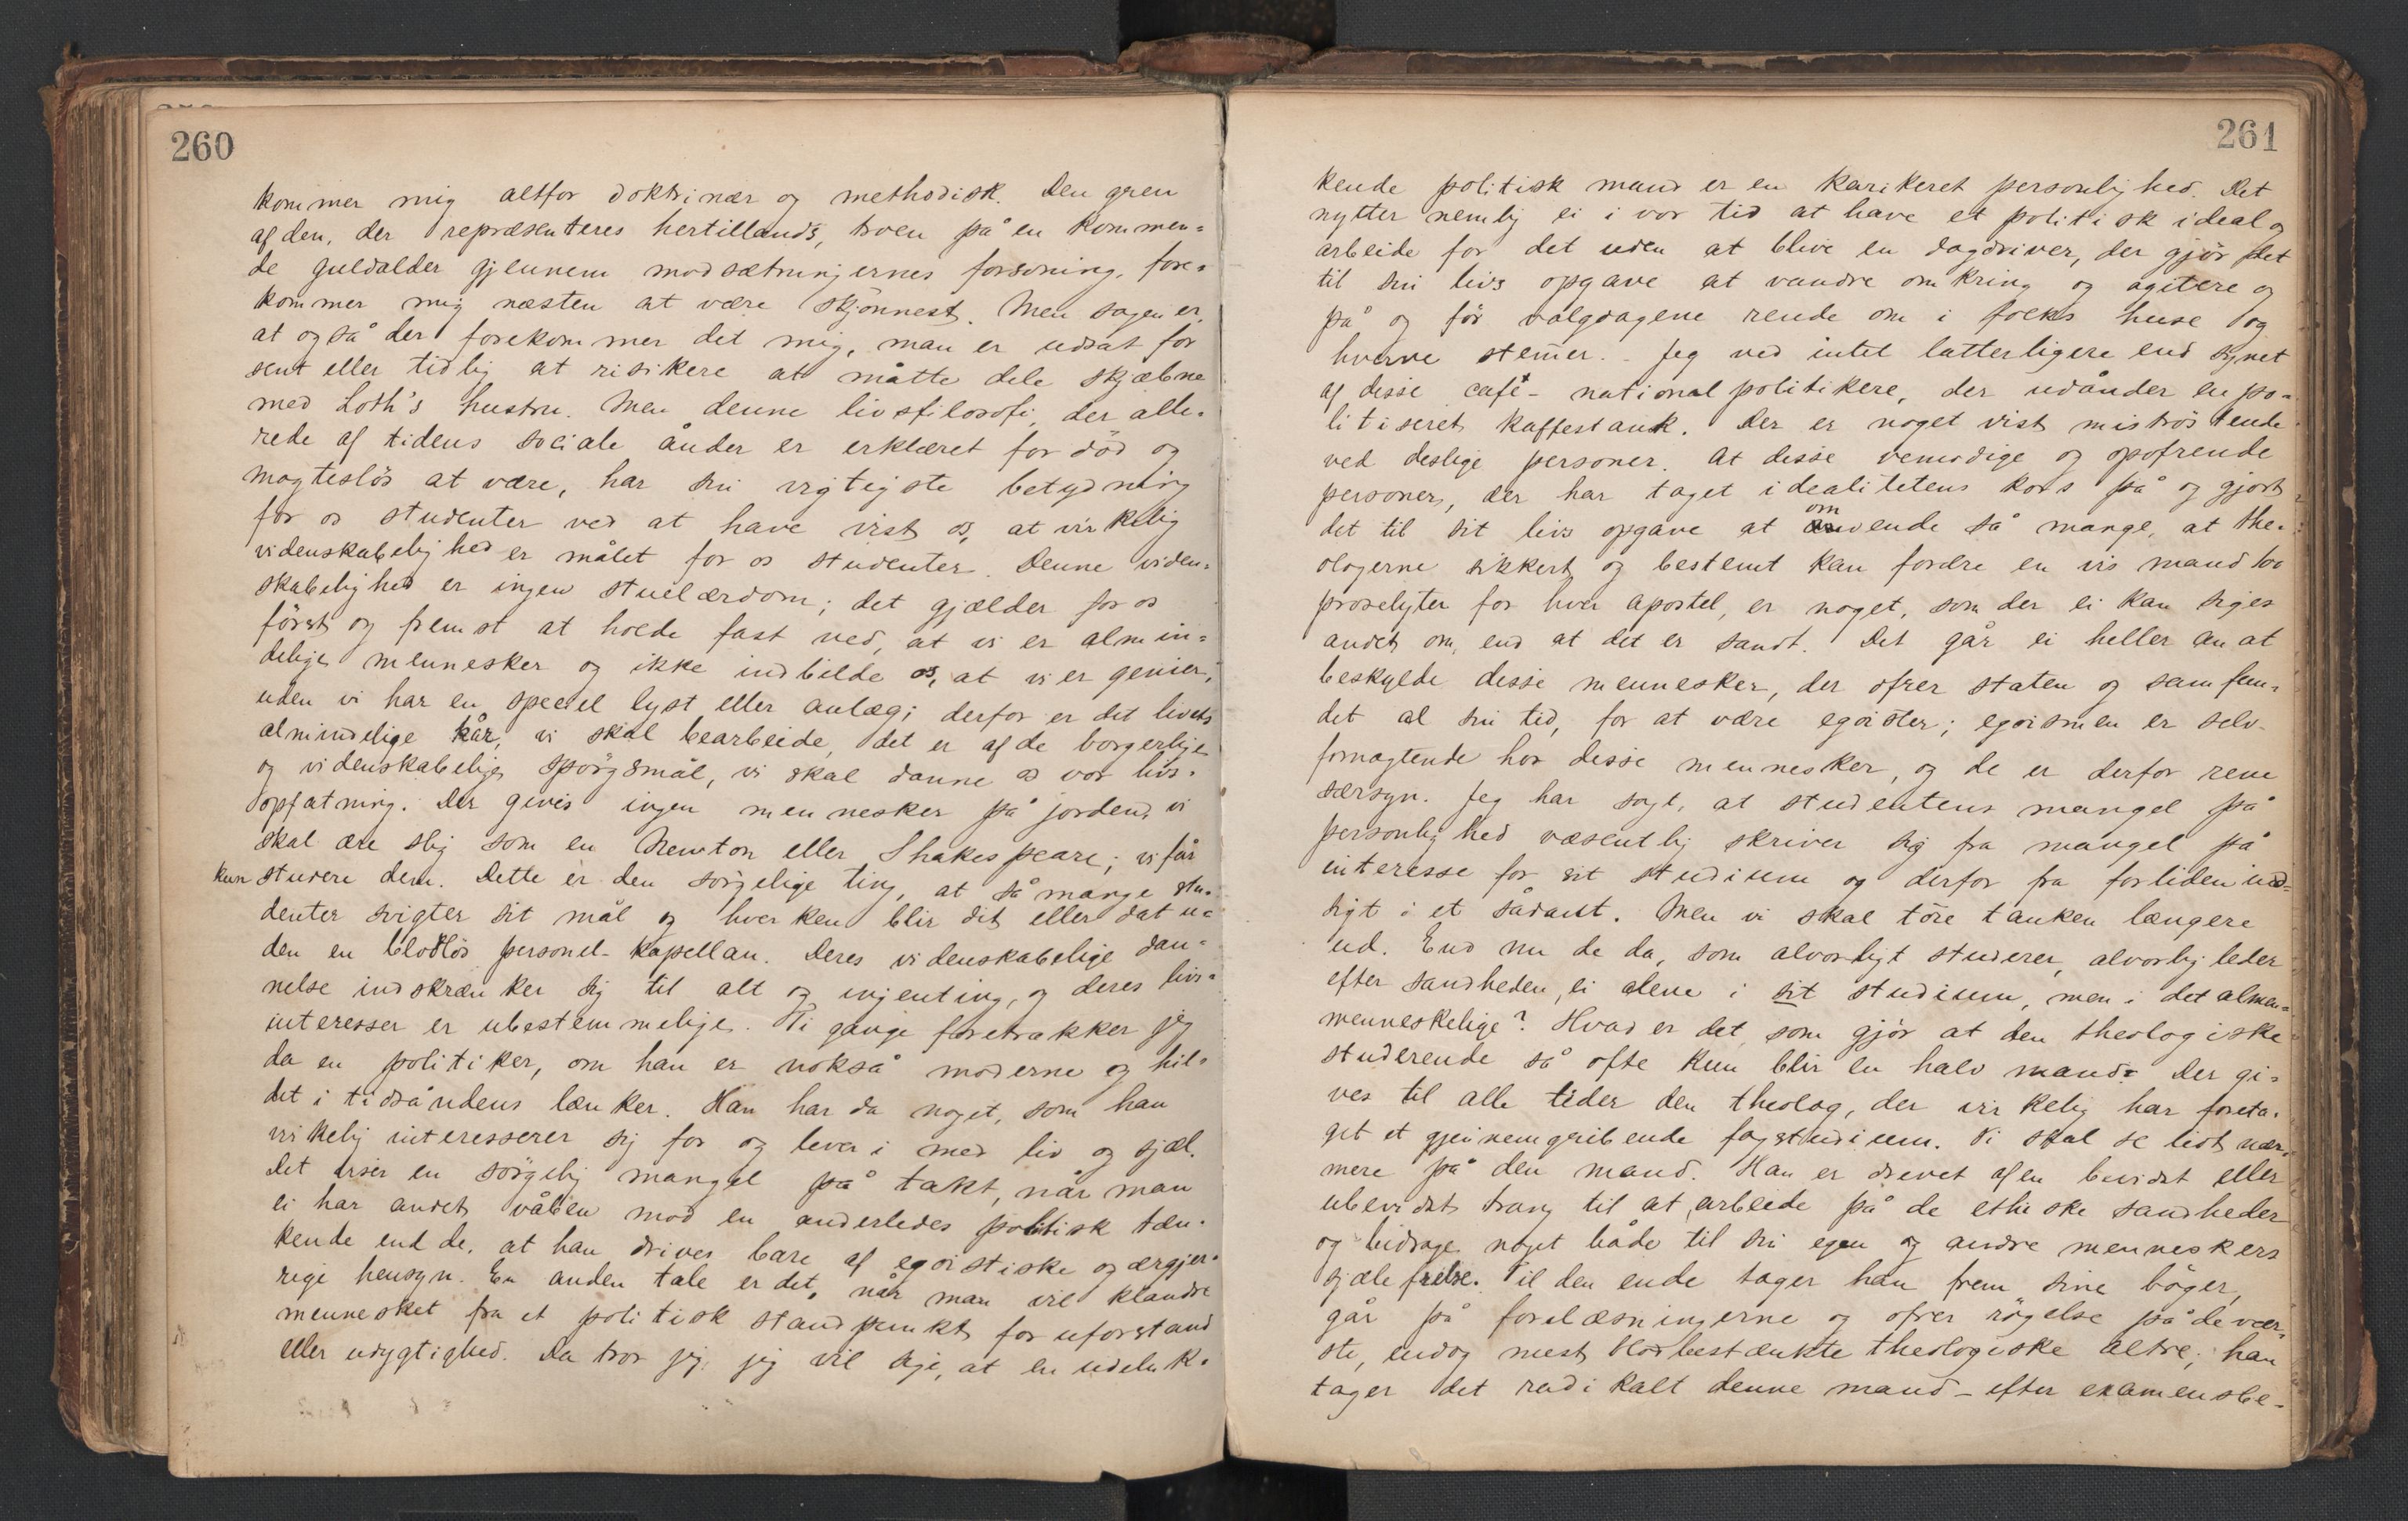 260
kommer mig altfor doktrinær og methodisk. Den gren
af den, der repræsenteres hertillands, troen på en kommen-
de guldalder gjennem modsætningernes forsoning, fore-
kommer mig næsten at være skjönnest. Men sagen er,
at også der forekommer det mig, man er udsat for
sent eller tidlig at risikere at måtte dele skjæbne
med Loth's hustru. Men denne livsfilosofi, der alle-
rede af tidens sociale ånder er erklæret for död og
magteslös at være, har sin vigtigste betydning
for os studenter ved at have vist os, at virkelig
videnskabelighed er målet for os studenter. Denne viden-
skabelighed er ingen stuelærdom; det gjælder for os
först og fremst at holde fast ved, at vi er almin-
delige mennesker og ikke indbilde os, at vi er genier,
uden vi har en speciel lyst eller anlæg; derfor er det livets
almindelige kår, vi skal bearbeide, det er af de borgerlige
og videnskabelige spörgsmål, vi skal danne os vor livs-
opfatning. Der gives ingen mennesker på jorden, vi
skal ære slig som en Newton eller Shakespeare; vi får
kun studere dem. Dette er den sörgelige ting, at så mange stu-
denter svigter sit mål og hverken blir dit eller dat u-
den en blodlös personel-kapellan. Deres videnskabelige dan-
nelse indskrænker sig til alt og ingenting, og deres livs-
interesser er ubestemmelige. Ti gange foretrækker jeg
da en politiker, om han er nokså moderne og hil-
det i tidsåndens lænker. Han har da noget, som han
virkelig interesserer sig for og lever i med liv og sjæl.
Det viser en sörgelig mangel på takt, når man
ei har andet våben mod en anderledes politisk tæn-
kende end de, at han drives bare af egoistiske og ærgjer-
rige hensyn. En anden tale er det, når man vil klandre
mennesket fra et politisk standpunkt for uforstand
eller udygtighed. Da tror jeg, jeg vil sige, at en udeluk-
261
kende politisk mand er en karikeret personlighed. Det
nytter nemlig ei i vor tid at have et politisk ideal og
arbeide for det uden at blive en dagdriver, der gjör det
til sin livs opgave at vandre omkring og agitere og
på og för valgdagene rende om i folks huse og
hverve stemer. - Jeg ved intet latterligere end synet
af disse café-nationalpolitikere, der udånder en po-
litiseret kaffestank. Der er noget vist miströstende
ved deslige personer. At disse vemodige og opofrende
personer, der har taget idealitetens kors på og gjort
det til sit livs opgave at omvende så mange, at the-
ologerne sikkert og bestemt kan fordre en vis mand 100
proselyter for hver apostel, er noget, som der ei kan siges
andet om, end at det er sandt. Det går ei heller an at
beskylde disse mennesker, der ofrer staten og samfun-
det al sin tid, for at være egoister; egoismen er selv-
fornægtende hos disse mennesker, og de er derfor rene
særsyn. Jeg har sagt, at studentens mangel på
personlighed væsentlig skriver sig fra mangel på
interesse for sit studium og derfor fra forliden ind-
sigt i et sådant. Men vi skal töre tanken længere
ud. End nu de da, som alvorligt studerer, alvorlig leder
efter sandheden, ei alene i sit studium, men i det almen-
menneskelige? Hvad er det, som gjör at den theologiske
studerende så ofte kun blir en halv mand? Der gi-
ves til alle tider den theolog, der virkelig har foreta-
get et gjennemgribende fagstudium. Vi skal se lidt nær-
mere på den mand. Han er drevet af en bevidst eller
ubevidst trang til at arbeide på de ethiske sandheder
og bidrage noget både til sin egen og andre menneskers
sjælefrelse. Til den ende tager han frem sine böger,
går på forelæsningerne og ofrer rögelse på de vær-
ste, endog mest blodbestænkte theologiske altre; han
tager det radikalt denne mand - efter examensbe-